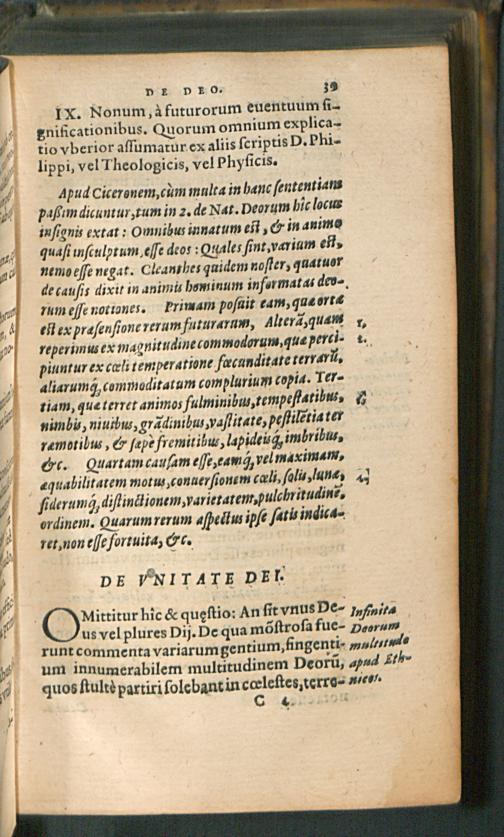 DE DEO. 39
IX. Nonum, à futurorum euentuum ſi-
gnificationibus. Quorum omnium explica-
tio vberior aſſumatur ex aliis ſcriptis D. Phi-
lippi, vel Theologicis, vel Phyſicis.
Apud Ciceronem, cùm multa in hanc ſententiam
paßim dicuntur, tum in 2. de Nat. Deorum hîc locus
inſignis extat: Omnibus innatum eſt, & in animo
quaſi inſculptum, eſſe deos: Quales ſint, varium eſt,
nemo eſſe negat. Cleanthes quidem noſter, quatuor
de cauſis dixit in animis hominum informatas deo-
rum eſſe notiones. Primam poſuit eam, quæ orta
eſt ex præſenſione rerum futurarum, Alterã, quam 1.
reperimus ex magnitudine commodorum, quæ perci- 2.
piuntur ex cœli temperatione fœcunditate terrarũ,
aliarumq́, commoditatum complurium copia. Ter-
tiam, quæ terret animos fulminibus, tempeſtatibus, 3.
nimbis, niuibus, grãdinibus, vaſtitate, peſtilẽtia ter
ræmotibus, & ſæpe fremitibus, lapideisq́, imbribus,
&c. Quartam cauſam eſſe, eamq́, vel maximam, 4.
æquabilitatem motus, conuerſionem cœli, ſolis, lunæ,
ſiderumq́, diſtinctionem, varietatem, pulchritudinẽ,
ordinem. Quarum rerum aſpectus ipſe ſatis indica-
ret, non eſſe fortuita, &c.
DE VNITATE DEI.
OMittitur hîc & quęſtio: An ſit vnus De-
us vel plures Dij. De qua mõſtroſa fue-
runt commenta variarum gentium, fingenti-
um innumerabilem multitudinem Deorũ,
quos ſtultè partiri ſolebant in cœleſtes, terre-
Infinita
Deorum
multitudo
apud Eth-
nicos.
C 4